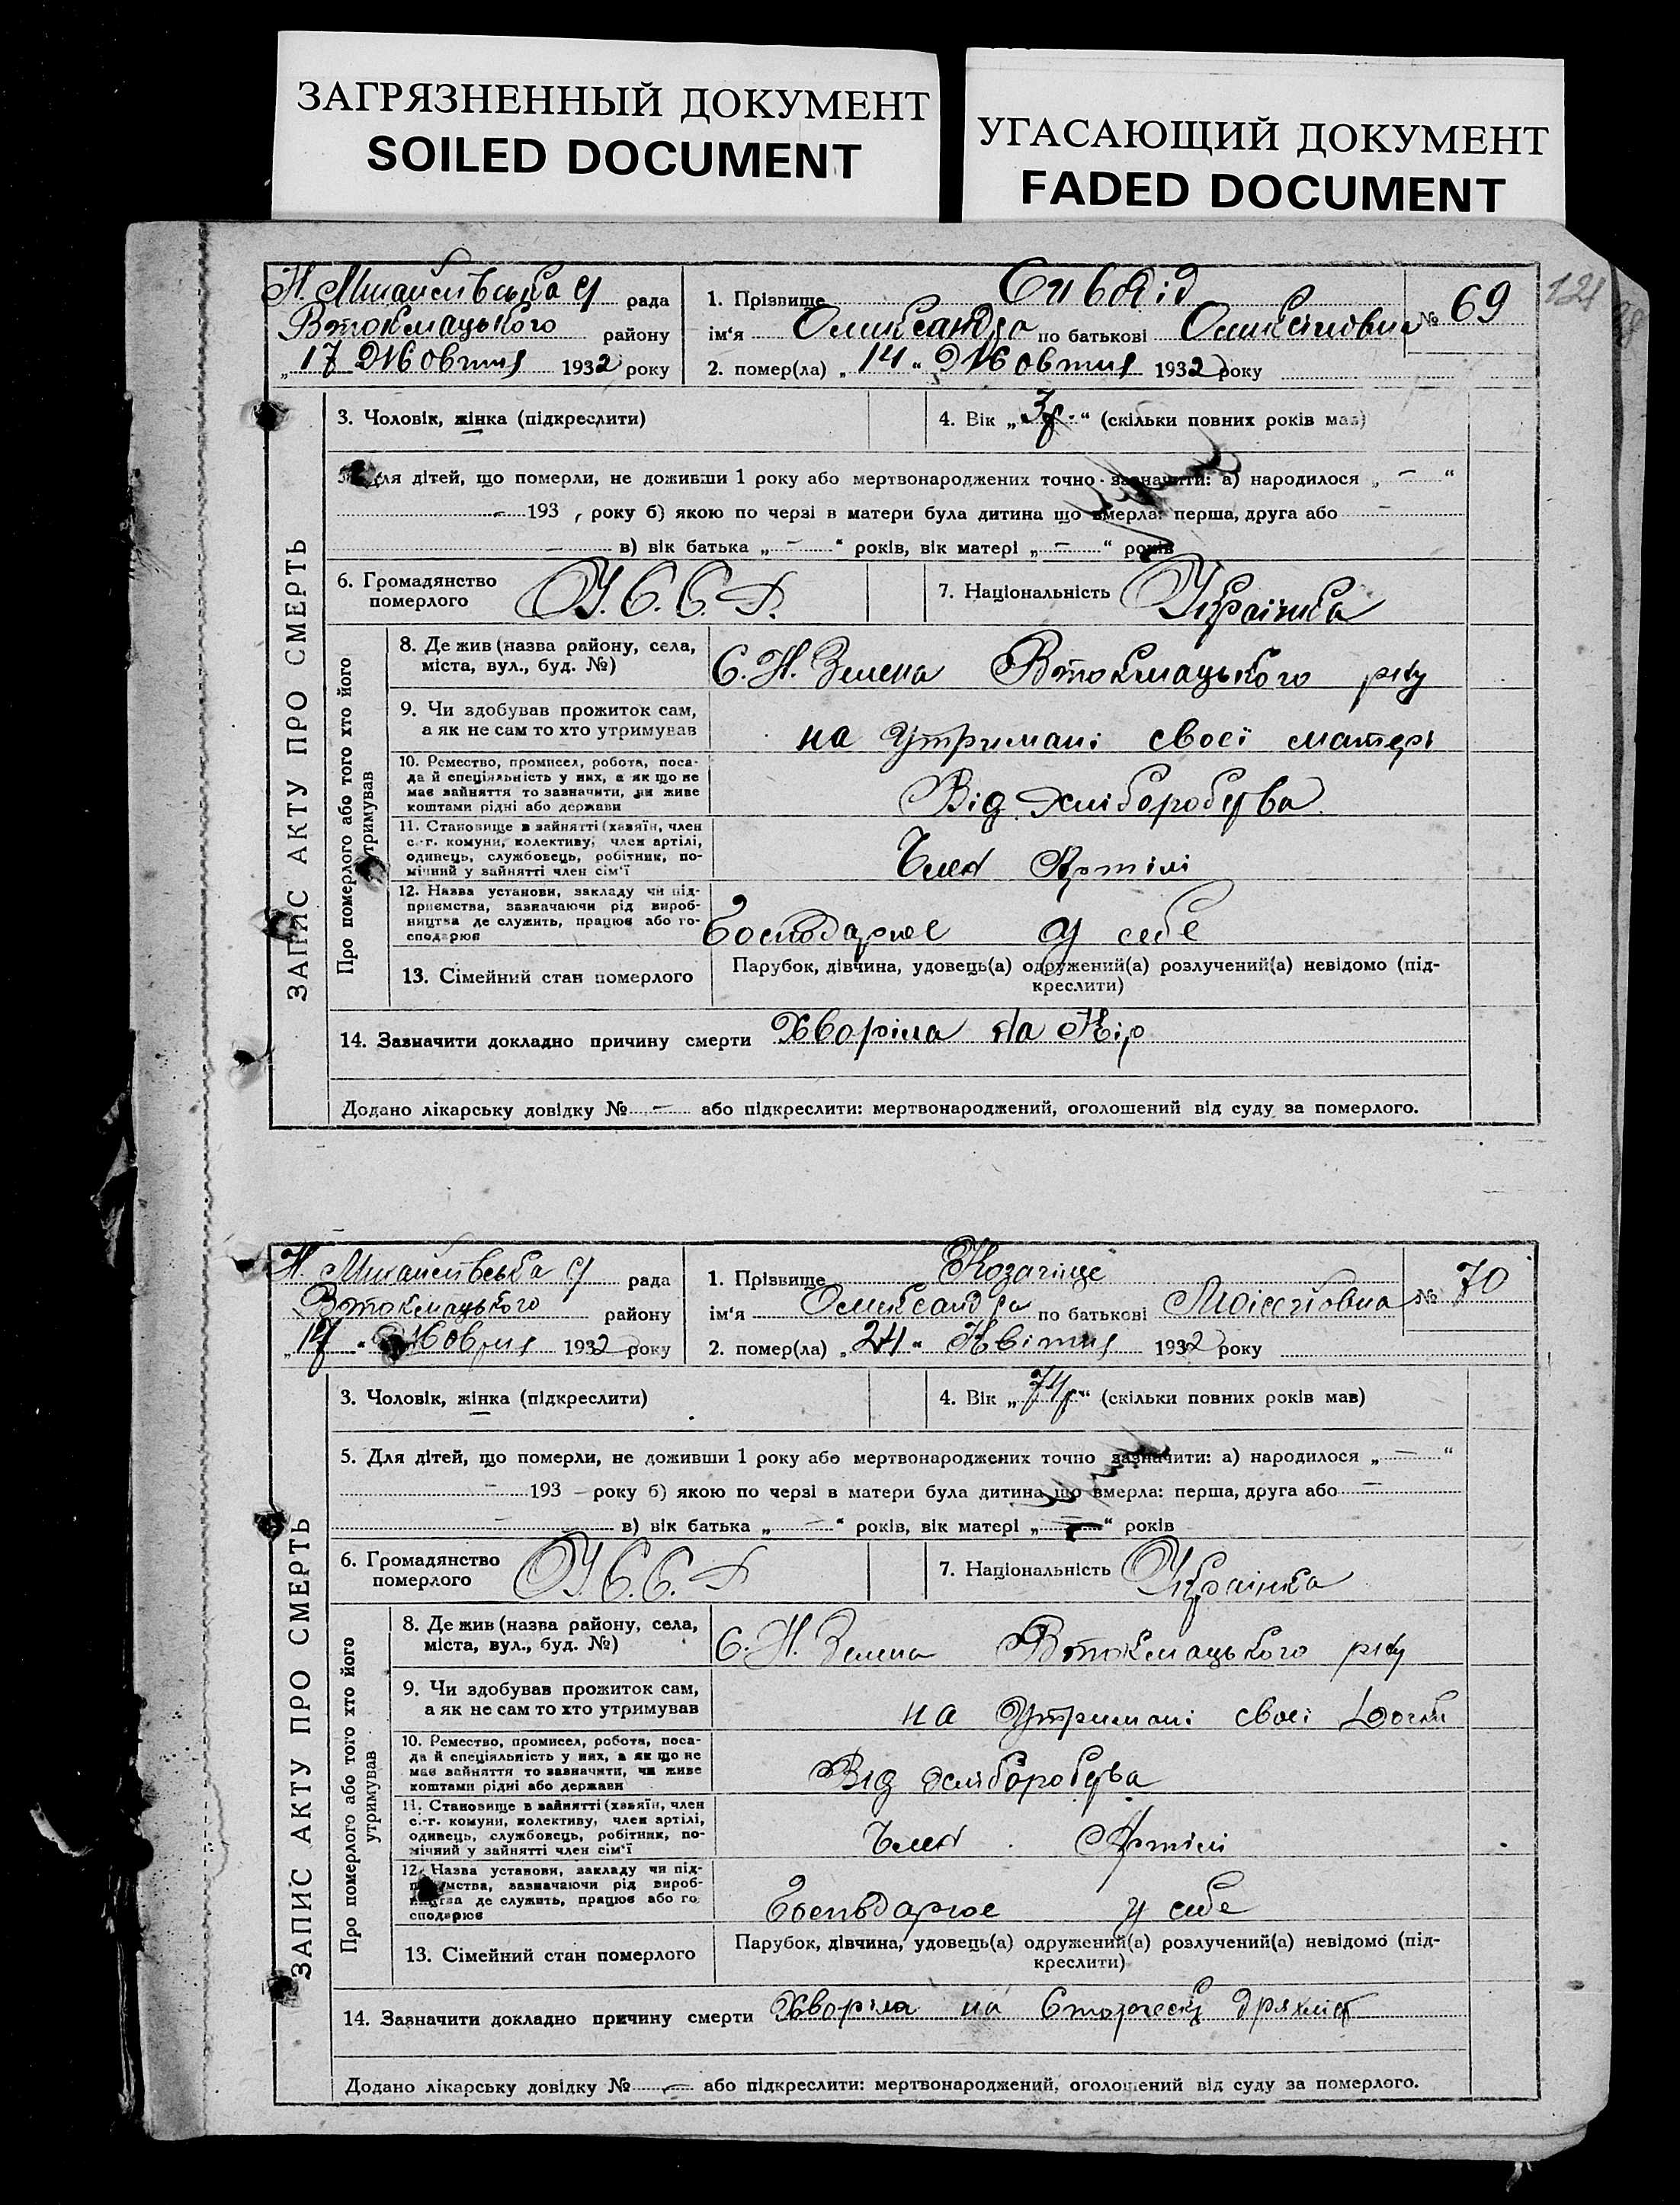 ЗАГРЯЗНЕННЫЙ ДОКУМЕНТ
SOILED DOCUMENT
УГАСАЮЩИЙ ДОКУМЕНТ
FADED DOCUMENT
121
ЗАПИС АКТУ ПРО СМЕРТЬ
Н. Михайлівська с/ рада
Втокмацького району
„17 Жовтня 1932 року
1. Прізвище
ім'я Олександра по батькові Олексіївна № 69
2. помер(ла) „14“ Жовтня 1932 року
3. Чоловік, жінка (підкреслити)
4. Вік „3р.“ (скільки повних років мав)
Для дітей, що померли, не доживши 1 року або мертвонароджених точно зазначити: а) народилося „ – “
193 року б) якою по черзі в матери була дитина що вмерла: перша, друга або –
– в) вік батька „ – “ років, вік матері „ – “ років
6. Громадянство померлого У.С.С.Р.
7. Національність Українка
Про померлого або того хто його утримував
8. Де жив (назва району, села,
міста, вул., буд. №)
С. Н. Зелена Втокмацького р-ну
9. Чи здобував прожиток сам,
а як не сам то хто утримував
на утримані своєї матері
10. Ремество, промисел, робота, поса-
да й спеціяльність у них, а як що не
має зайняття то зазначити, чи живе
коштами рідні або держави
Від хліборобства
11. Становище в зайнятті (хазяїн, член
с.-г. комуни, колективу, член артілі,
одинець, службовець, робітник, по-
мічний у зайнятті член сім'ї
Член Артілі
12. Назва установи, закладу чи під-
приємства, зазначаючи рід вироб-
ництва де служить, працює або го-
сподарює
Господарює у себе
13. Сімейний стан померлого
Парубок, дівчина, удовець(а) одружений(а) розлучений(а) невідомо (під-
креслити)
14. Зазначити докладно причину смерти Хворіла на Кір
Додано лікарську довідку № – або підкреслити: мертвонароджений, оголошений від суду за померлого.
ЗАПИС АКТУ ПРО СМЕРТЬ
Н. Михайлівська с/ рада
Втокмацького району
„17“ Жовтня 1932 року
1. Прізвище
ім'я Олександра по батькові Мойсеївна № 70
2. помер(ла) „24“ Квітня 1932 року
3. Чоловік, жінка (підкреслити)
4. Вік „74р“ (скільки повних років мав)
5. Для дітей, що померли, не доживши 1 року або мертвонароджених точно зазначити: а) народилося „ – “
– 193 – року б) якою по черзі в матери була дитина що вмерла: перша, друга або –
– в) вік батька „ – “ років, вік матері „ – “ років
6. Громадянство померлого У.С.С.Р
7. Національність Українка
Про померлого або того хто його утримував
8. Де жив (назва району, села,
міста, вул., буд. №)
С. Н. Зелена Втокмацького р-ну
9. Чи здобував прожиток сам,
а як не сам то хто утримував
на утримані своєі Дочки
10. Ремество, промисел, робота, поса-
да й спеціяльність у них, а як що не
має зайняття то зазначити, чи живе
коштами рідні або держави
Від хліборобства
11. Становище в зайнятті (хазяїн, член
с.-г. комуни, колективу, член артілі,
одинець, службовець, робітник, по-
мічний у зайнятті член сім'ї
Член Артілі
12. Назва установи, закладу чи під-
приємства, зазначаючи рід вироб-
ництва де служить, працює або го
сподарює
Господарює у себе
13. Сімейний стан померлого
Парубок, дівчина, удовець(а) одружений(а) розлучений(а) невідомо (під-
креслити)
14. Зазначити докладно причину смерти Хворіла на дряхліст
Додано лікарську довідку № – або підкреслити: мертвонароджений, оголошений від суду за померлого.